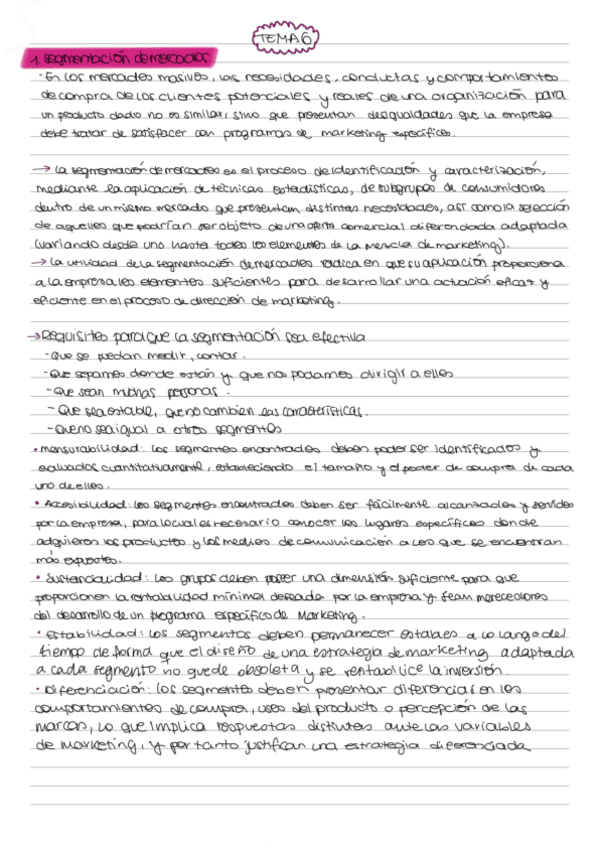 TEMA 6
1. Segmentación de mercados.
- En los mercados masivos, las necesidades, conductas y comportamientos
de compra de los clientes potenciales y reales de una organización para
un producto dado no es similar, sino que presentan desigualdades que la empresa
debe tratar de satisfacer con programas de marketing específicos.
→ La segmentación de mercados es el proceso de identificación y caracterización,
mediante la aplicación de técnicas estadísticas, de subgrupos de consumidores
dentro de un mismo mercado que presentan distintas necesidades, así como la selección
de aquellos que podrían ser objeto de una oferta comercial diferenciada adaptada
(variando desde uno hasta todos los elementos de la mezcla de marketing).
→ La utilidad de la segmentación de mercados radica en que su aplicación proporciona
a la empresa los elementos suficientes para desarrollar una actuación eficaz y
eficiente en el proceso de dirección de marketing.
→ Requisitos para que la segmentación sea efectiva
- Que se puedan medir, contar.
- Que sepamos donde están y que nos podamos dirigir a ellos
- Que sean muchas personas.
- Que sea estable, que no cambien las características.
- Que no sea igual a otros segmentos
• Mensurabilidad: los segmentos encontrados deben poder ser identificados y
evaluados cuantitativamente, estableciendo el tamaño y el poder de compra de cada
uno de ellos.
• Accesibilidad: los segmentos encontrados deben ser fácilmente alcanzados y servidos
por la empresa, para lo cual es necesario conocer los lugares específicos donde
adquieren los productos y los medios de comunicación a los que se encuentran
más expuestos.
• Sustancialidad: Los grupos deben poseer una dimensión suficiente para que
proporcionen la rentabilidad mínima deseada por la empresa y sean merecedores
del desarrollo de un programa específico de Marketing.
• Estabilidad: los segmentos deben permanecer estables a lo largo del
tiempo de forma que el diseño de una estrategia de marketing adaptada
a cada segmento no quede obsoleta y se rentabilice la inversión.
• Diferenciación: los segmentos deben presentar diferencias en los
comportamientos de compra, usos del producto o percepción de las
marcas, lo que implica respuestas distintas ante las variables
de marketing, y por tanto justifican una estrategia diferenciada